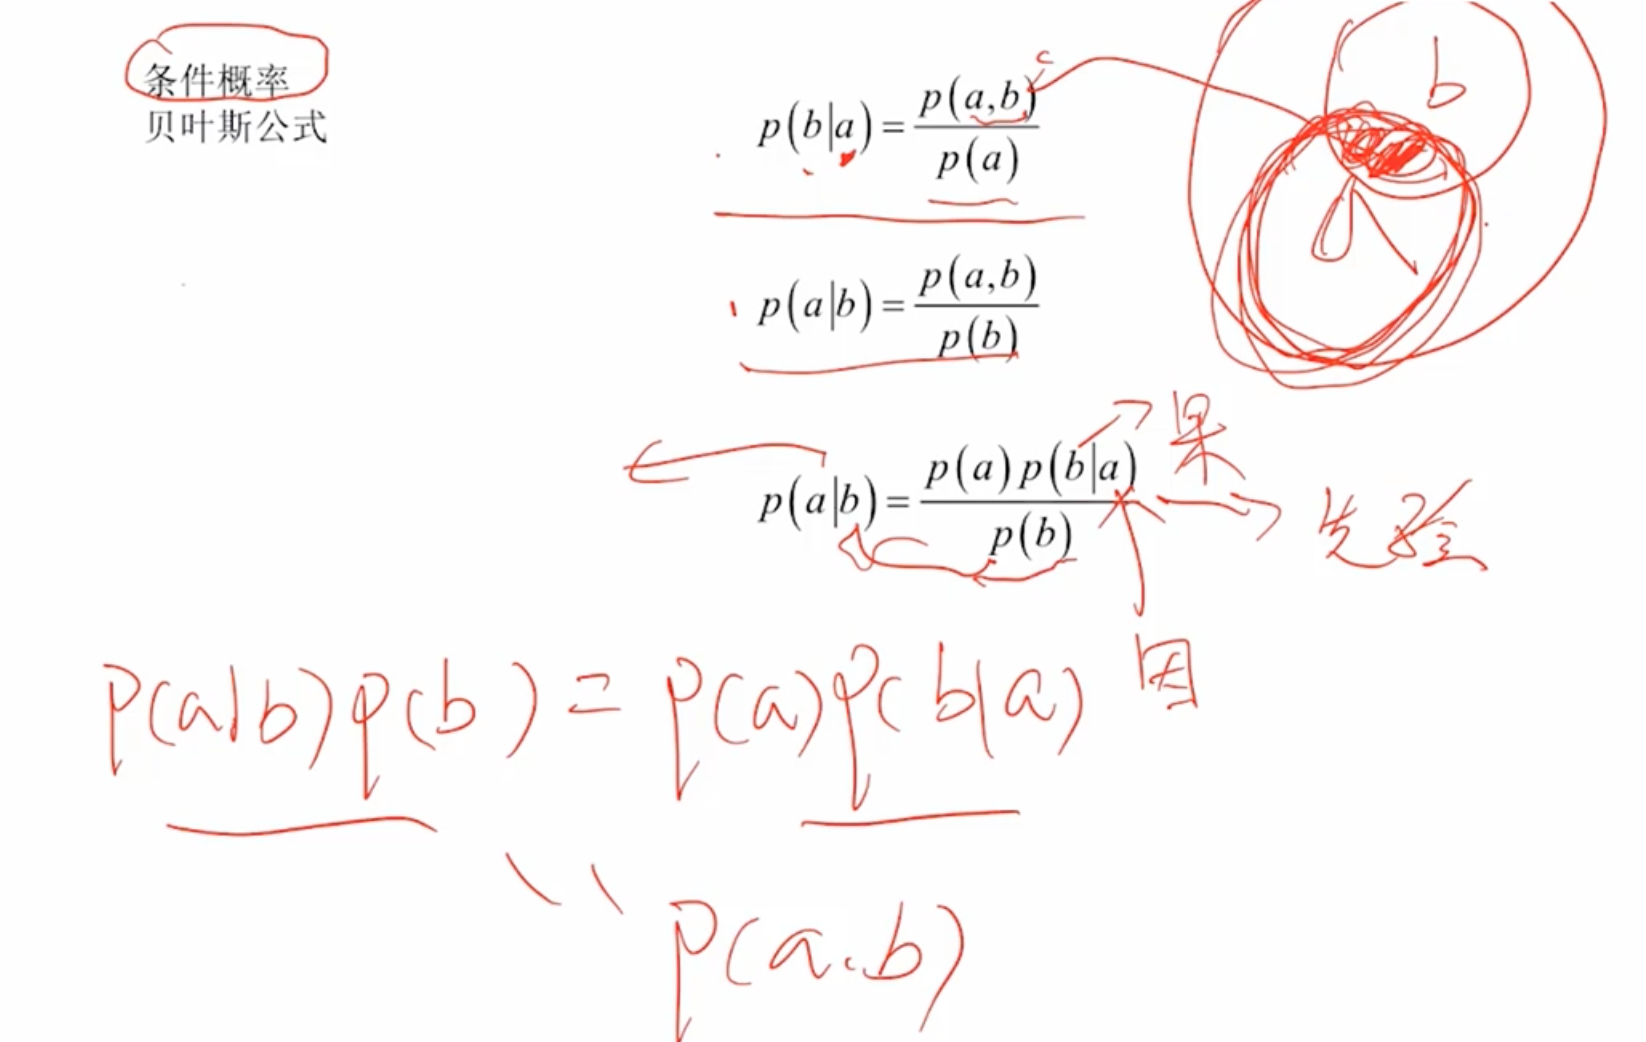 条件概率
贝叶斯公式
p(b|a) = p(a,b) / p(a)
c
b
a
p(a|b) = p(a,b) / p(b)
p(a|b) = p(a)p(b|a) / p(b)
果
先验
因
p(a|b)p(b) = p(a)p(b|a)
p(a.b)